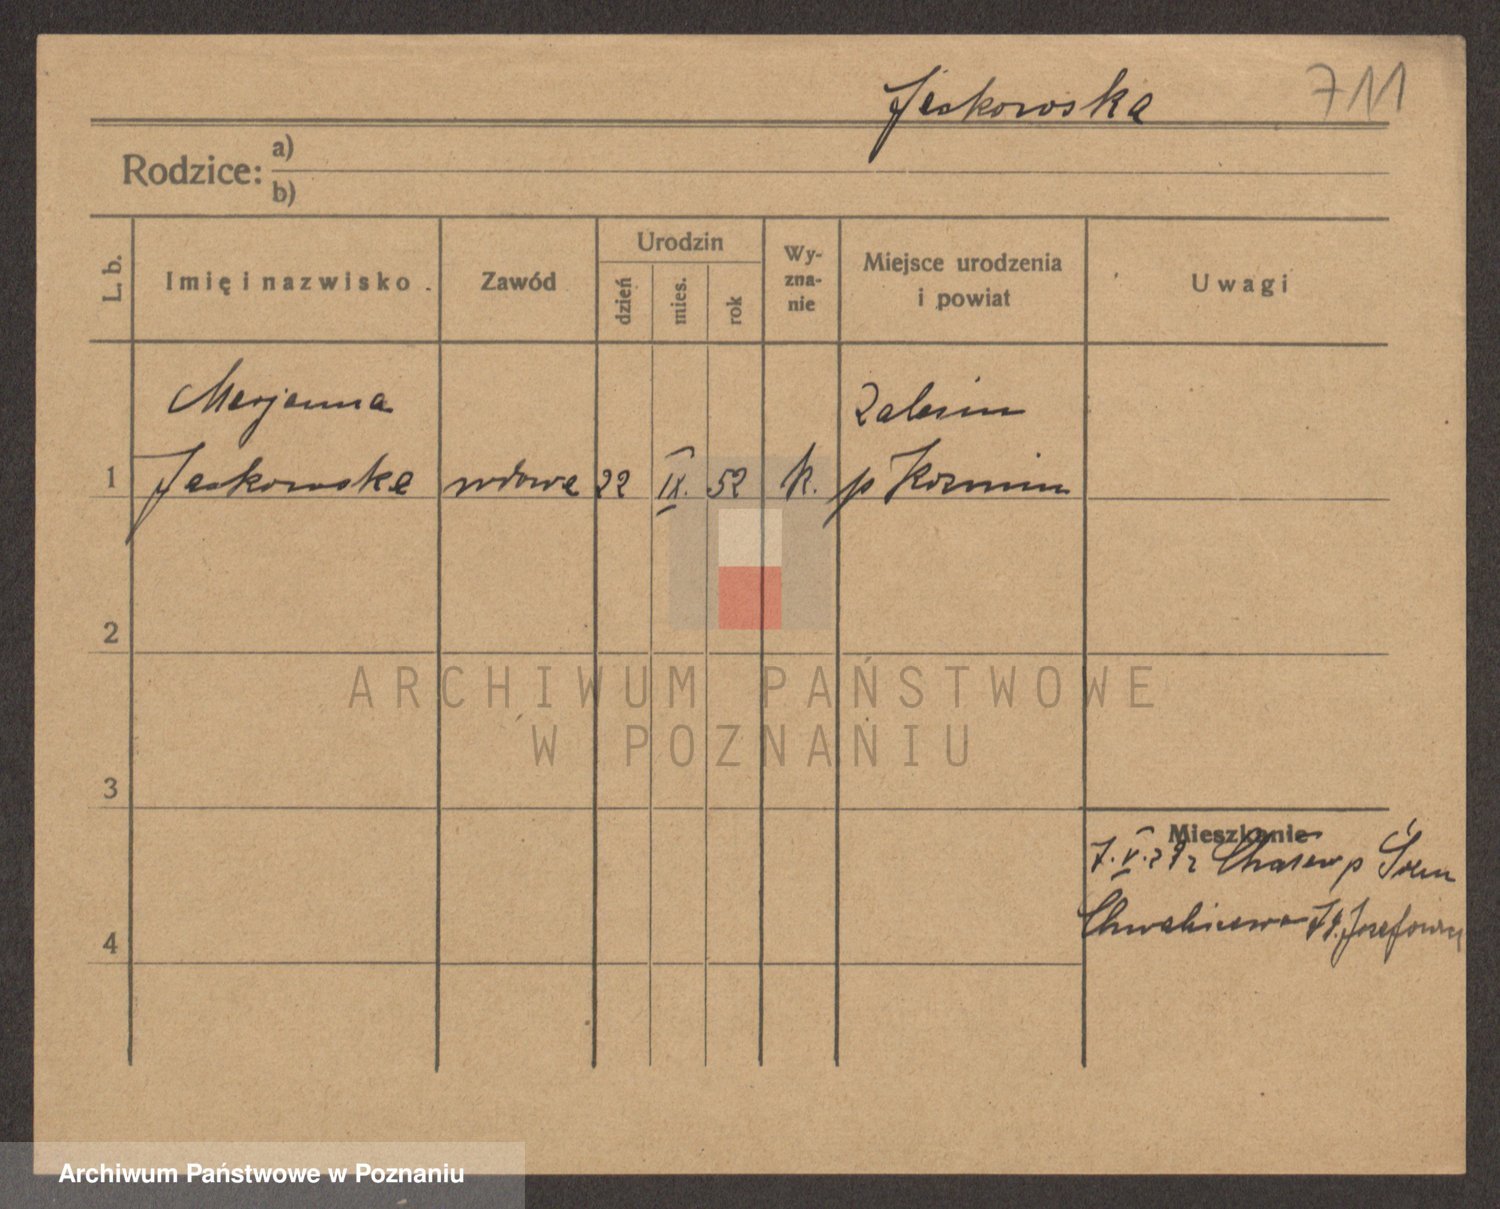 Jeskowska 711
Rodzice: a)
b)
L. b.
Imię i nazwisko
Zawód
Urodzin
dzień
mies.
rok
Wy-
zna-
nie
Miejsce urodzenia
i powiat
Uwagi
Marjanna
Jeskowska
1
wdowa
22
IX.
52
k.
Zalesiu
p Koźmin
2
3
4
Mieszkanie
7.V.27 z p Śrem
Józefowiu
ARCHIWUM PAŃSTWOWE
W POZNANIU
Archiwum Państwowe w Poznaniu